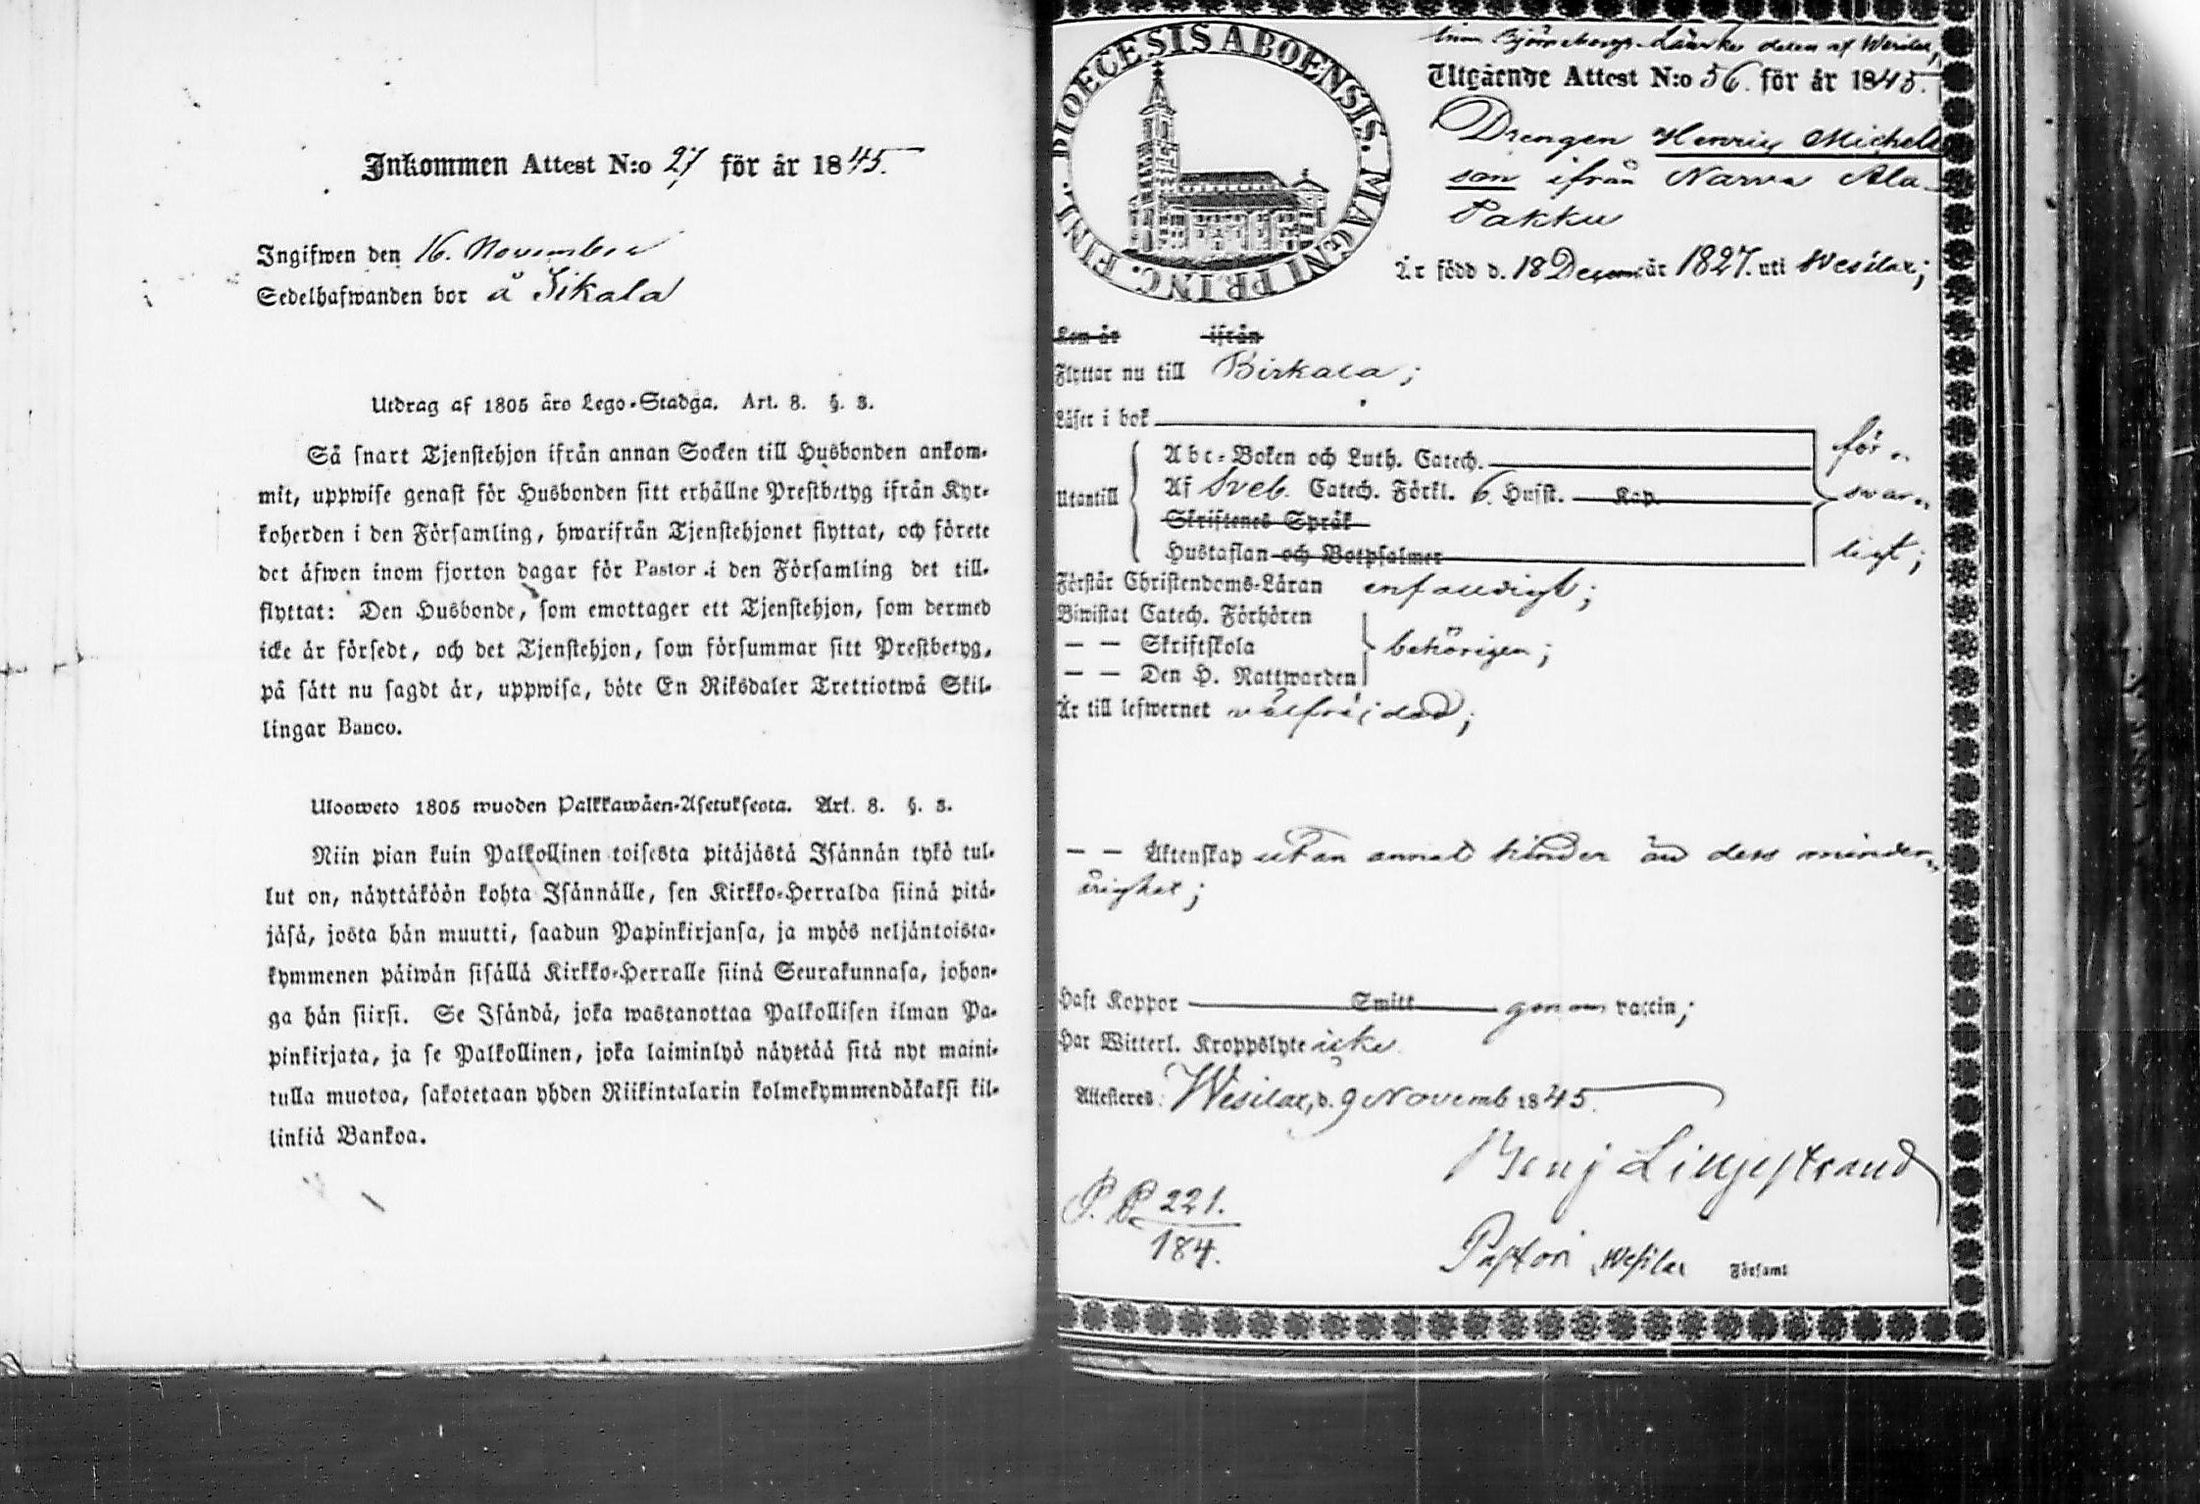 Inkommen Attest N:o 27 för år 1845.
Ingifwen den 16. November
Sedelhafwanden bor å Sikala
Utdrag af 1805 års Lego-Stadga. Art. 8. §. 3.
Så snart Tjenstehjon ifrån annan Socken till Husbonden ankom-
mit, uppwise genast för Husbonden sitt erhållne Prestbetyg ifrån Kyr-
koherden i den Församling, hwarifrån Tjenstehjonet flyttat, och förete
det äfwen inom fjorton dagar för Pastor i den Församling det till-
flyttat: Den Husbonde, som emottager ett Tjenstehjon, som dermed
icke är försedt, och det Tjenstehjon, som försummar sitt Prestbetyg,
på sätt nu sagdt är, uppwisa, böte En Riksdaler Trettiotwå Skil-
lingar Banco.
Ulosweto 1805 wuoden Palkkawäen-Asetuksesta. Art. 8. §. 3.
Niin pian kuin Palkollinen toisesta pitäjästä Isännän tykö tul-
lut on, näyttäköön kohta Isännälle, sen Kirkko-Herralda siinä pitä-
jäsä, josta hän muutti, saadun Papinkirjansa, ja myös neljäntoista-
kymmenen päiwän sisällä Kirkko-Herralle siinä Seurakunnasa, johon-
ga hän siirsi. Se Isändä, joka wastanottaa Palkollisen ilman Pa-
pinkirjata, ja se Palkollinen, joka laiminlyö näyttää sitä nyt maini-
tulla muotoa, sakotetaan yhden Riikintalarin kolmekymmendäkaksi kil-
linkiä Bankoa.
DIOECESIS ABOENSIS. MAGNI PRINC. FINL.
inom Björneborgs Länes delen af Wesilax,
Utgående Attest N:o 56. för år 1845.
Drengen Henric Michels
son ifrån Narva Ala
Pakku
Är född d. 18 Decem: år 1827. uti Wesilax;
Kom år ifrån
Flyttar nu till Birkala;
Läser i bok
Abc-Boken och Luth. Catech.
för
Utantill
Af Sveb. Catech. Förkl. 6. Hufst. Kap.
swar
Skriftenes Språk
Hustaflan och Botpsalmer
ligt;
Förstår Christendoms-Läran enfaldigt;
Biwistat Catech. Förhören
— — Skriftskola
behörigen;
— — Den H. Nattwarden
Är till lefwernet välfräjdad;
— — Äktenskap utan annat hinder än dess minder
årighet;
Haft Koppor Smitt genom vaccin;
Har Witterl. Kroppslyte icke
Attesteres: Wesilax, d. 9 Novemb 1845.
Benj Liljestrand
P. B. 221.
184.
Pastor i Wesilax Församl